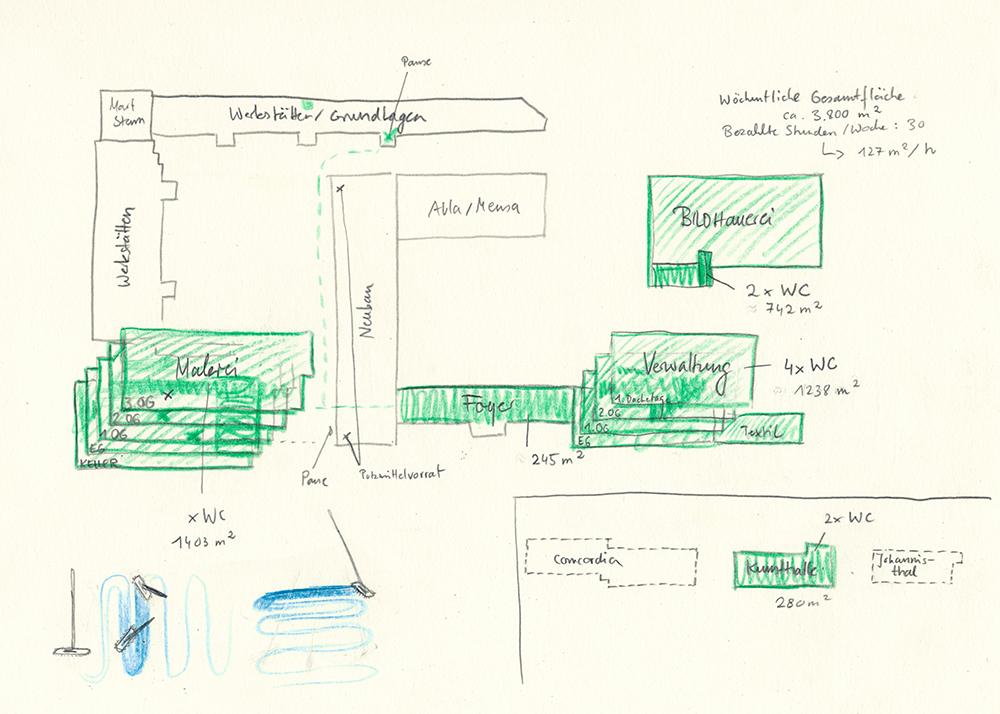 Pause
Mart
Stam
Werkstätten/Grundlagen
Wöchentliche Gesamtfläche
ca. 3.800 m²
Bezahlte Stunden/Woche: 30
↳ 127 m²/h
Werkstätten
Aula/Mensa
Bildhauerei
2x WC
≈ 742 m²
Neubau
Malerei
3.OG
2.OG
1.OG
EG
KELLER
Foyer
245 m²
Verwaltung
1. Dachetage
2.OG
1.OG
EG
Textil
4x WC
≈ 1238 m²
Pause
Putzmittelvorrat
x WC
1403 m²
2x WC
Concordia
Kunsthalle
Johannis-
thal
280 m²